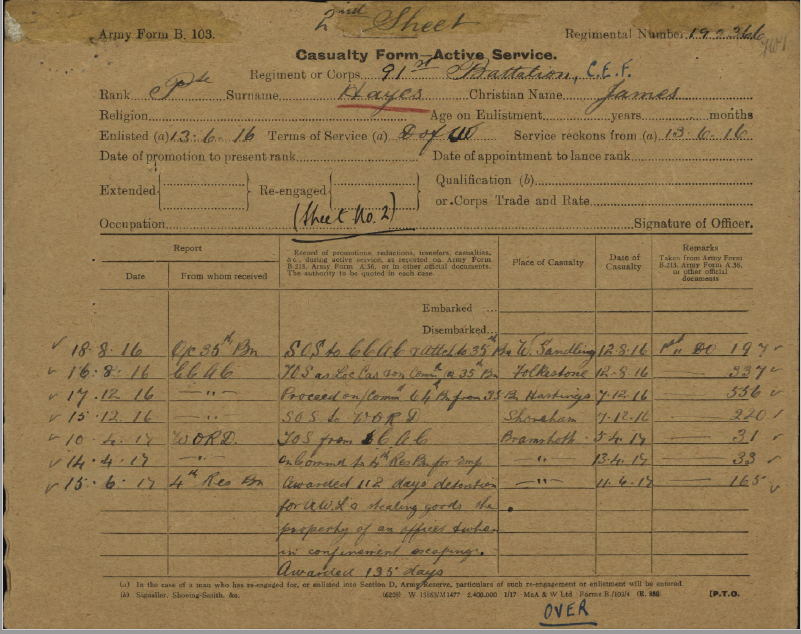 2nd Sheet
Army Form B. 103.
Regimental Number 192366
Casualty Form—Active Service.
Regiment or Corps 91st Battalion, C.E.F.
Rank Pte Surname Hayes Christian Name James
Religion Age on Enlistment years months
Enlisted (a) 13·6·16 Terms of Service (a) D of W Service reckons from (a) 13·6·16
Date of promotion to present rank Date of appointment to lance rank
Extended Re-engaged Qualification (b)
or Corps Trade and Rate
(Sheet No. 2)
Occupation Signature of Officer.
Report Record of promotions, reductions, transfers, casualties, &c., during active service, as reported on Army Form B.213, Army Form A.36, or in other official documents. The authority to be quoted in each case. Place of Casualty Date of Casualty Remarks Taken from Army Form B.213, Army Form A.36, or other official documents
Date From whom received
Embarked ...
Disembarked ...
18·8·16 O/c 35th Bn SOS to CCAC & attch to 35th Bn W. Sandling 12·8·16 " DO 197
16·8·16 CCAC TOS as Cas on Comm 35th Bn Folkestone 12-8-16 337
17·12·16 —"— Proceed on Comm 64th Bn from 35 Bn Hastings 7-12-16 556
15·12·16 —"— SOS to WORD Shoreham 7-12-16 220
10·4·17 WORD. TOS from CCAC Bramshott 5·4·17 31
14·4·17 —"— on Commd to 4th Res Bn for —"— 13·4·17 33
15·6·17 4th Res Bn Awarded 112 days detention —"— 11·6·17 165
for AWL & stealing goods the
property of an officer & when
in confinement escaping.
Awarded 135 days
(a) In the case of a man who has re-engaged for, or enlisted into Section D, Army Reserve, particulars of such re-engagement or enlistment will be entered.
(b) Signaller, Shoeing-Smith, &c. 2,400,000 1/17 McA & W Ltd Forms B./103/4 [P.T.O.
OVER